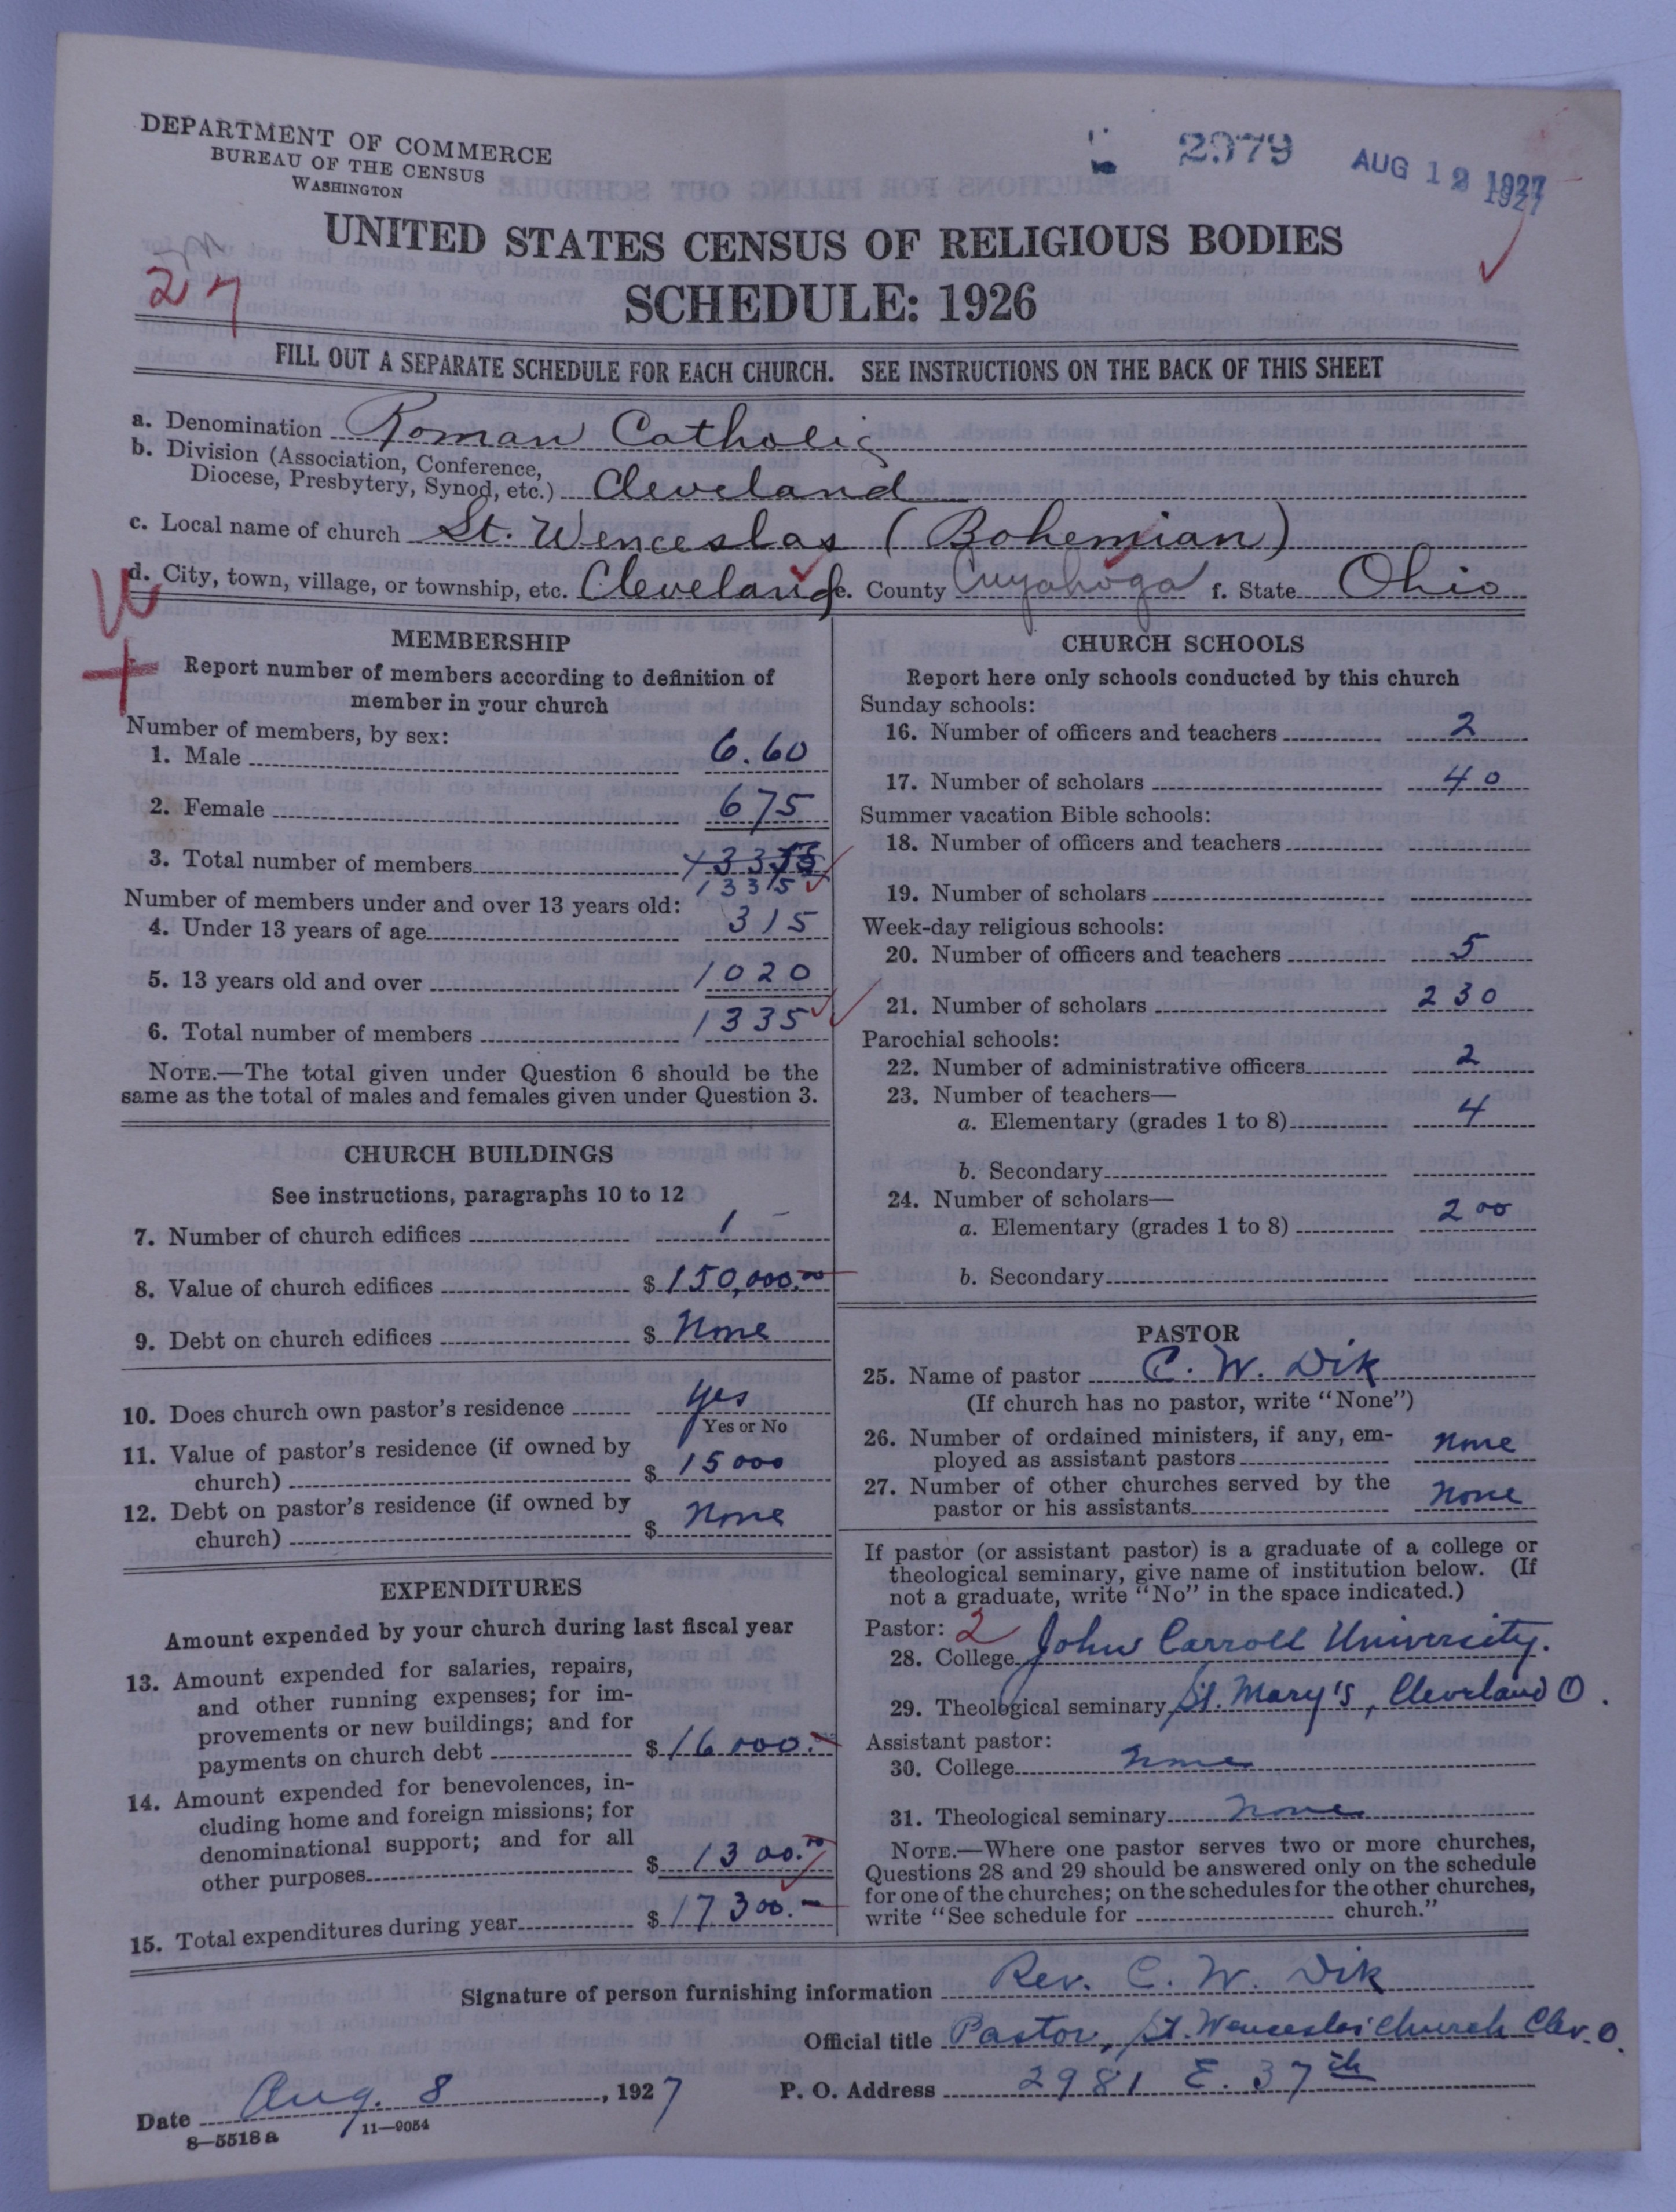 DEPARTMENT OF COMMERCE
BUREAU OF THE CENSUS
WASHINGTON
2979
AUG 12 1927
1927
UNITED STATES CENSUS OF RELIGIOUS BODIES
SCHEDULE: 1926
27
FILL OUT A SEPARATE SCHEDULE FOR EACH CHURCH. SEE INSTRUCTIONS ON THE BACK OF THIS SHEET
a. Denomination Roman Catholic
b. Division (Association, Conference,
Diocese, Presbytery, Synod, etc.) Cleveland
c. Local name of church St. Wenceslas (Bohemian)
d. City, town, village, or township, etc. Cleveland e. County Cuyahoga f. State Ohio
MEMBERSHIP
Report number of members according to definition of
member in your church
Number of members, by sex:
1. Male 6.60
2. Female 675
3. Total number of members
1335
Number of members under and over 13 years old:
4. Under 13 years of age 315
5. 13 years old and over 1020
6. Total number of members 1335
NOTE.—The total given under Question 6 should be the
same as the total of males and females given under Question 3.
CHURCH BUILDINGS
See instructions, paragraphs 10 to 12
7. Number of church edifices 1
8. Value of church edifices $150,000.00
9. Debt on church edifices $ None
10. Does church own pastor's residence yes
Yes or No
11. Value of pastor's residence (if owned by
church) $ 15000
12. Debt on pastor's residence (if owned by
church) $ None
EXPENDITURES
Amount expended by your church during last fiscal year
13. Amount expended for salaries, repairs,
and other running expenses; for im-
provements or new buildings; and for
payments on church debt $16000.—
14. Amount expended for benevolences, in-
cluding home and foreign missions; for
denominational support; and for all
other purposes $ 1300.00
15. Total expenditures during year $17300.—
CHURCH SCHOOLS
Report here only schools conducted by this church
Sunday schools:
16. Number of officers and teachers 2
17. Number of scholars 40
Summer vacation Bible schools:
18. Number of officers and teachers
19. Number of scholars
Week-day religious schools:
20. Number of officers and teachers 5
21. Number of scholars 230
Parochial schools:
22. Number of administrative officers 2
23. Number of teachers—
a. Elementary (grades 1 to 8) 4
b. Secondary
24. Number of scholars—
a. Elementary (grades 1 to 8) 200
b. Secondary
PASTOR
25. Name of pastor C. W. Dik
(If church has no pastor, write "None")
26. Number of ordained ministers, if any, em-
ployed as assistant pastors none
27. Number of other churches served by the
pastor or his assistants None
If pastor (or assistant pastor) is a graduate of a college or
theological seminary, give name of institution below. (If
not a graduate, write "No" in the space indicated.)
Pastor: 2
28. College John Carroll University.
29. Theological seminary St. Mary's, Cleveland O.
Assistant pastor:
30. College None
31. Theological seminary None
NOTE.—Where one pastor serves two or more churches,
Questions 28 and 29 should be answered only on the schedule
for one of the churches; on the schedules for the other churches,
write "See schedule for church."
Signature of person furnishing information Rev. C. W. Dik
Official title Pastor, St. Wenceslas Church Clev. O.
Date Aug. 8, 1927 P. O. Address 2981 E. 37th
8—5518a 11—9054